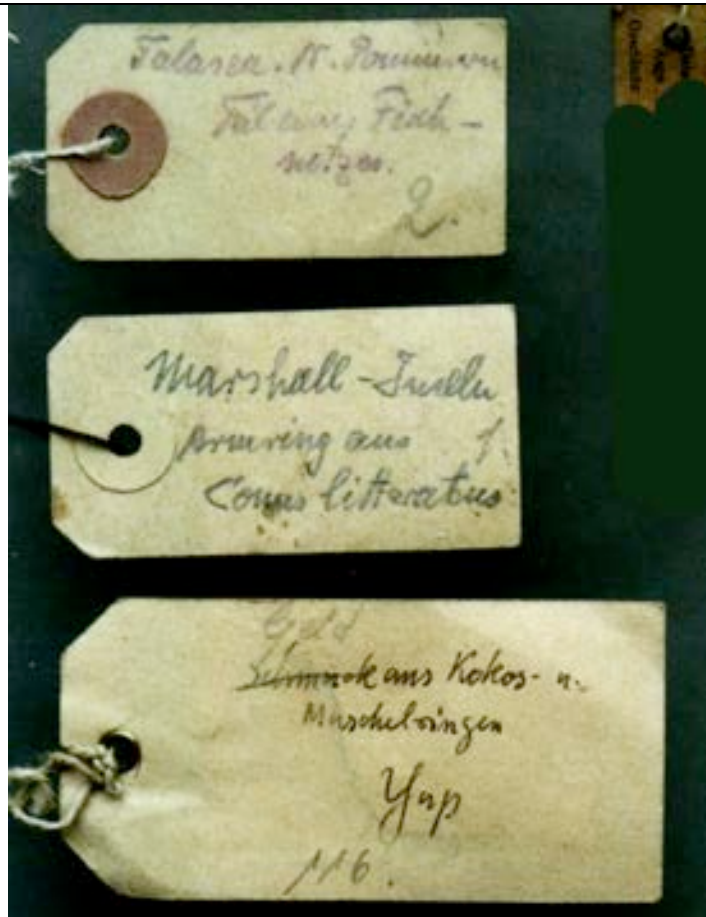 Talasea. N. Pommern
Fischnetzen.
2.
Marshall-Inseln
Armring aus 1.
Conus litteratus
Geld
Schmuck aus Kokos- u.
Muschelringen
Yap
116.